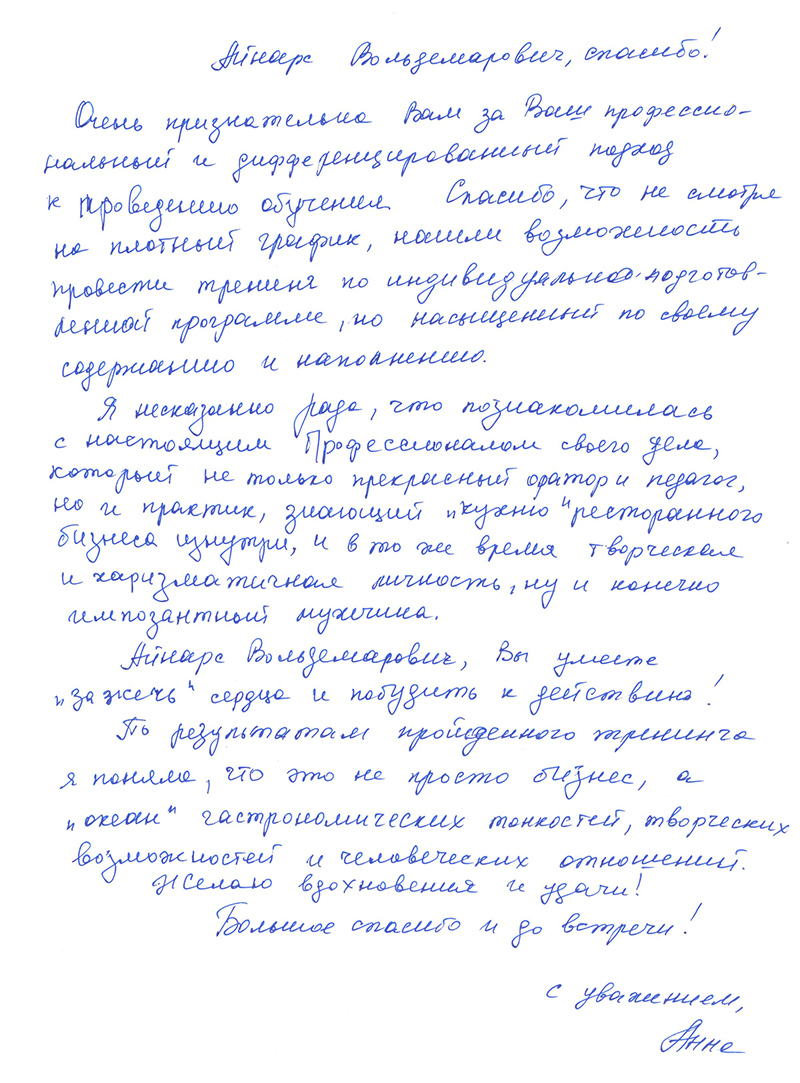 Айнарс Вольдемарович, спасибо!
Очень признательна Вам за Ваш профессио-
нальный и дифференцированный подход
к проведению обучения. Спасибо, что не смотря
на плотный график, нашли возможность
провести тренинг по индивидуально подготов-
ленной программе, но насыщенный по своему
содержанию и наполнению.
Я несказанно рада, что познакомилась
с настоящим Профессионалом своего дела,
который не только прекрасный оратор и педагог,
но и практик, знающий „кухню" ресторанного
бизнеса изнутри, и в то же время творческая
и харизматичная личность, ну и конечно
импозантный мужчина.
Айнарс Вольдемарович, Вы умеете
„зажечь" сердца и побудить к действию!
По результатам пройденного тренинга
я поняла, что это не просто бизнес, а
„океан" гастрономических тонкостей, творческих
возможностей и человеческих отношений.
Желаю вдохновения и удачи!
Большое спасибо и до встречи!
с уважением,
Анна